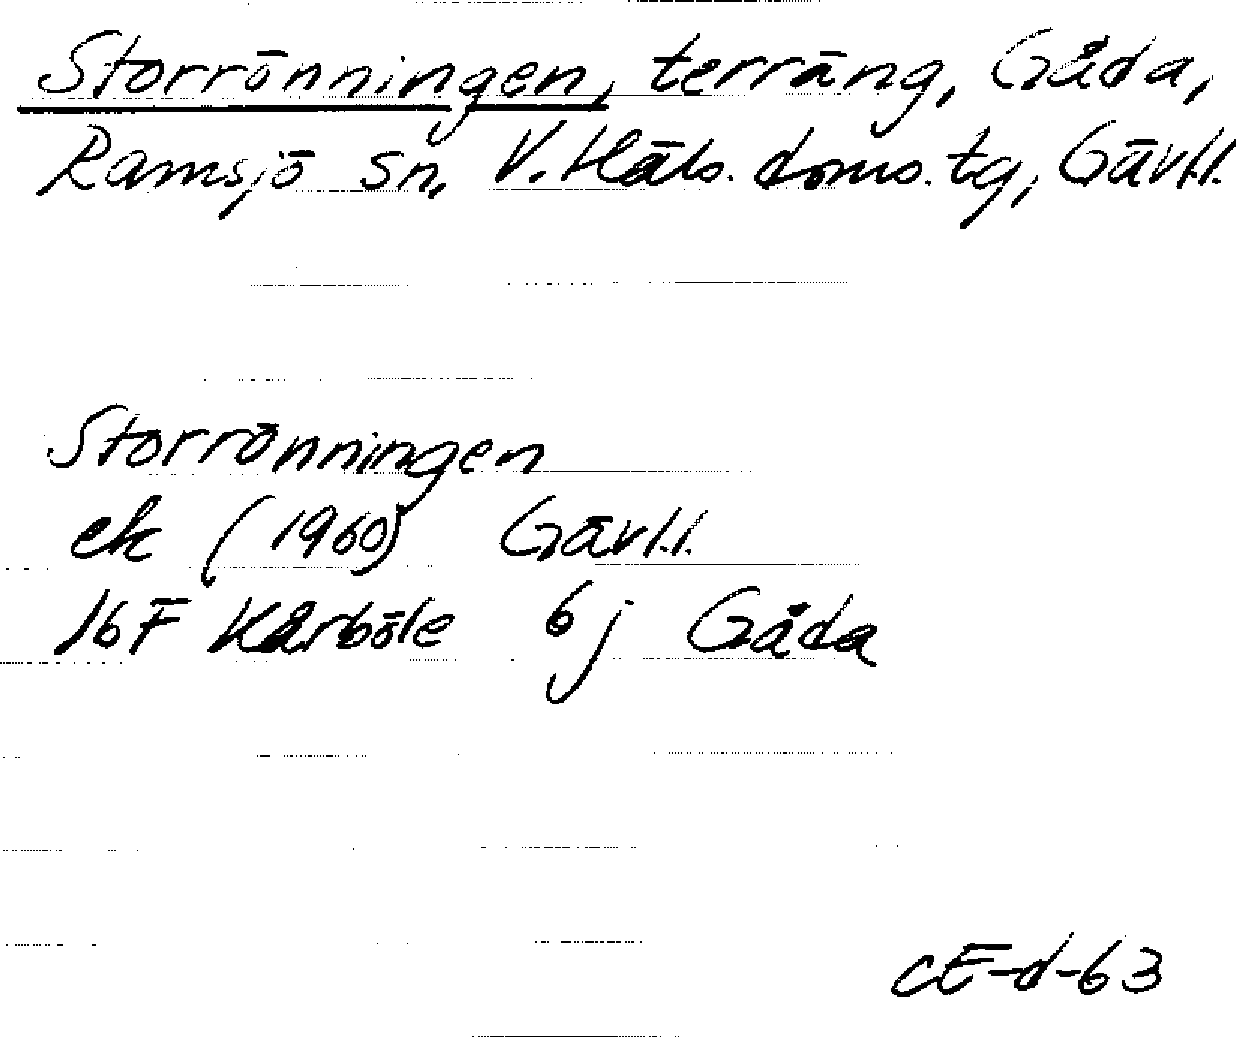 Storrönningen, terräng, Gåda,
Ramsjö sn, V. Häls. doms. tg, Gävl.l.
Storrönningen
ek (1960) Gävl.l.
16F Kårböle 6j Gåda
CE-d-63